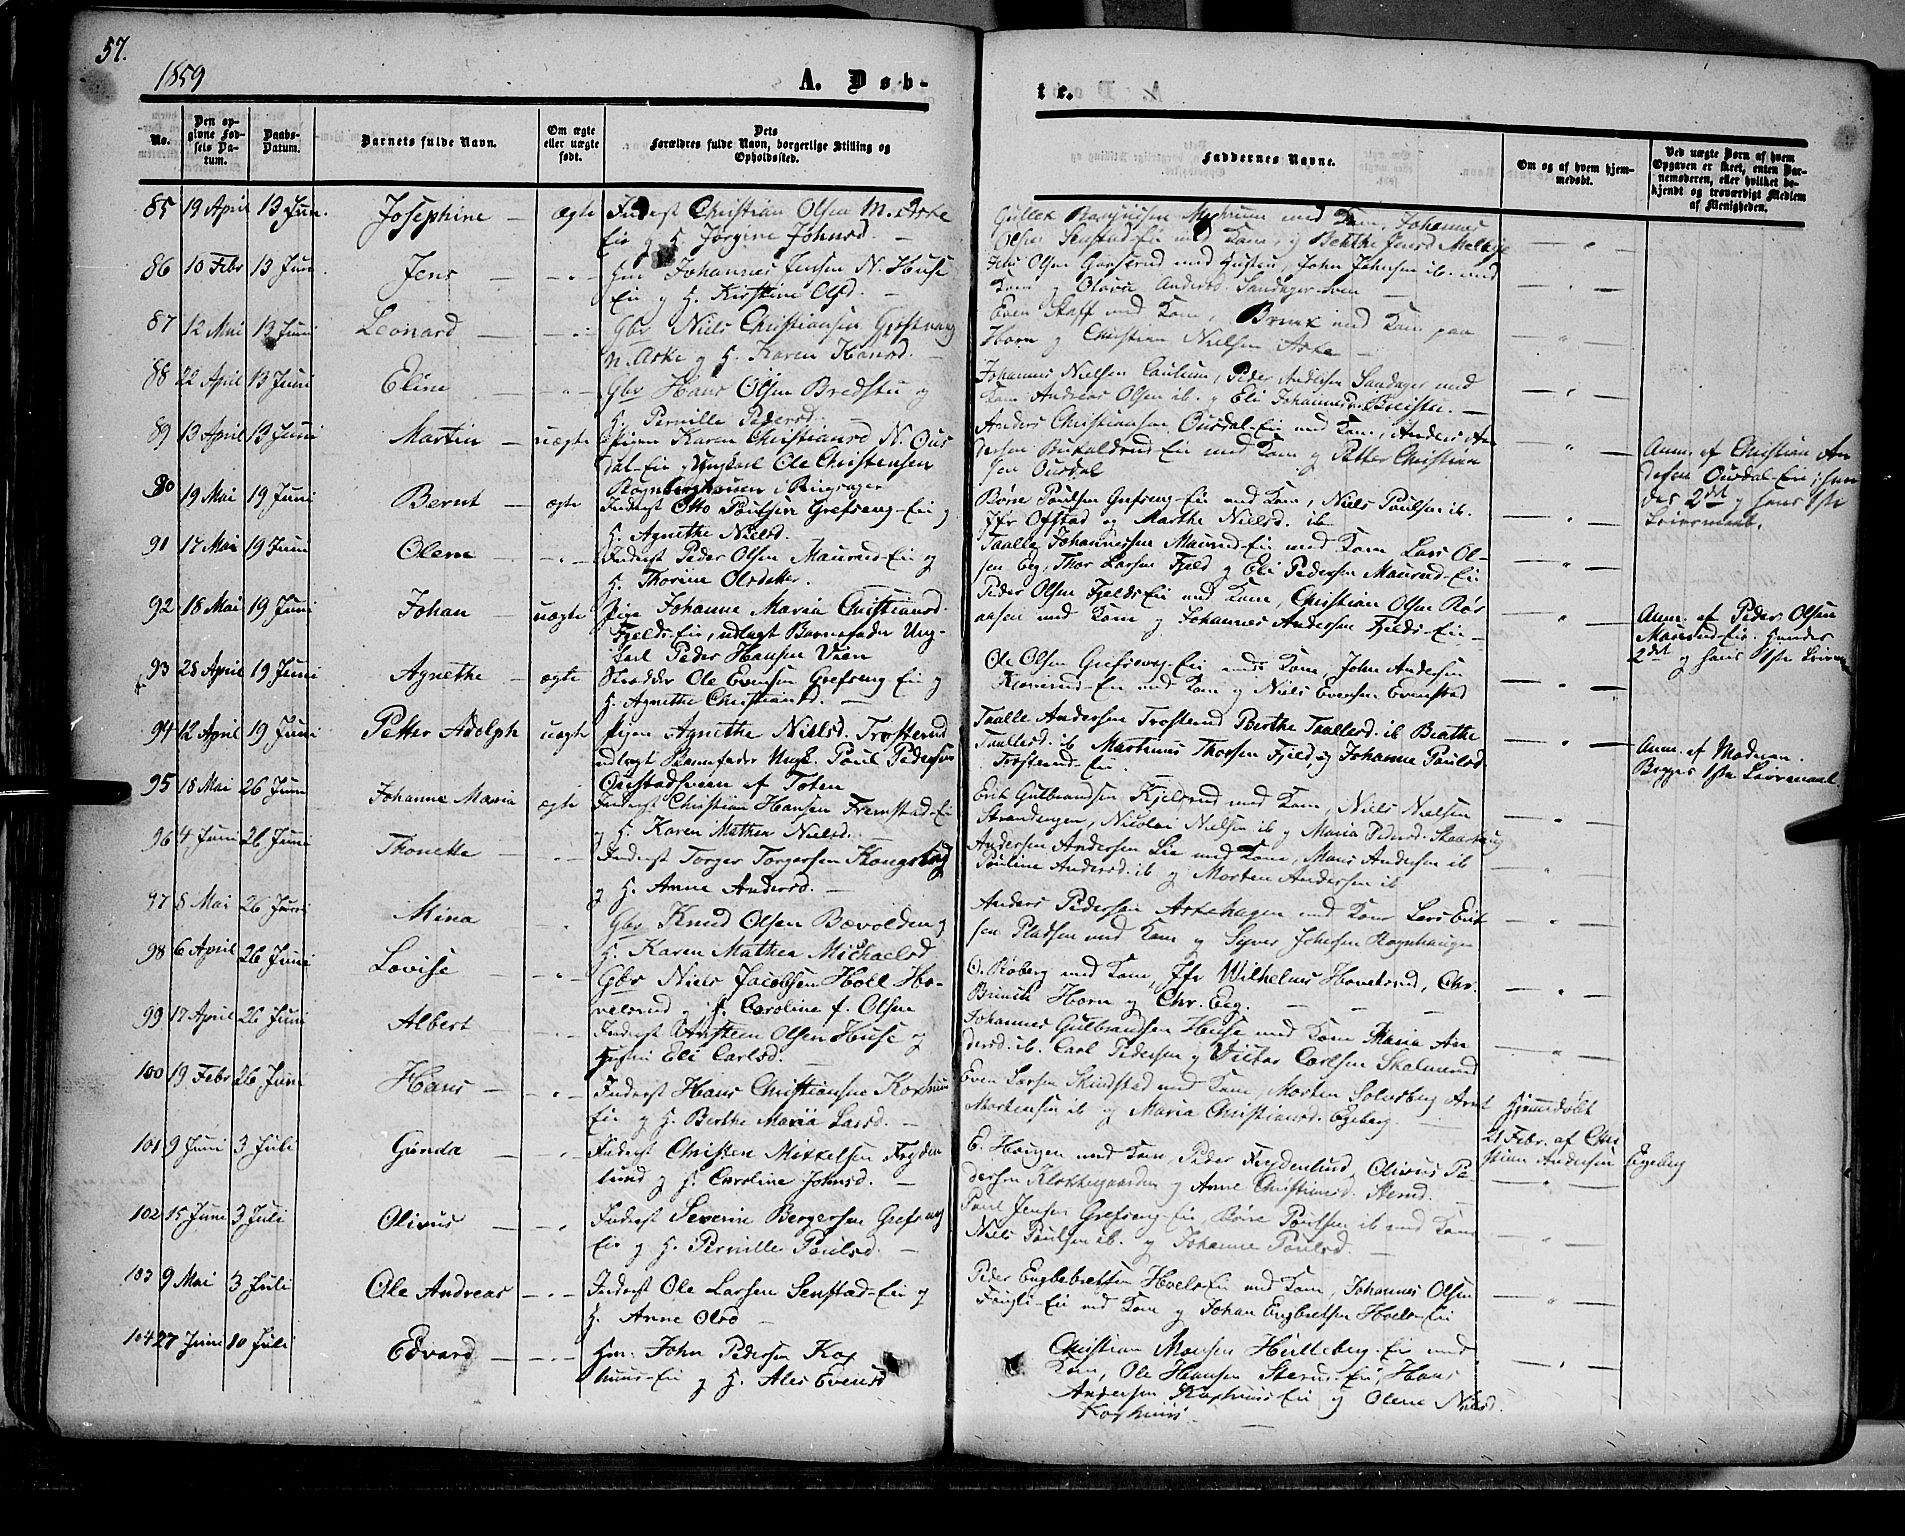 57.
1859
A. Døb-
te.
No.
Den op-
givne Fød-
sels Da-
tum.
Daabs-
Datum.
Barnets fulde Navn.
Om ægte
eller uægte
født.
Dets
Forældres fulde Navn, borgerlige Stilling og
Opholdssted.
Faddernes Navne.
Om og af hvem hjem-
medøbt.
Ved uægte Børn af hvem
Opgaven er skeet, enten Bar-
nemoderen, eller hvilket be-
kjendt og troværdigt Medlem
af Menigheden.
85 19 April 13 Jun. Josephine — ægte Inderst Christian Olsen M. Aske
Eie og H. Jørgine Johnsd. —
Olsen Senstad-Eie med Kone, og Beathe Jensd
86 10 Febr 13 Jun. Jens — Hm. Johannes Jensen N. Huse
Eie og H. Kirstine Olsd. —
John Johnsen ib. med
Kone og Andersd. Sandager-Eien —
87 12 Mai 13 Juni Leonard — Gbr Niels Christiansen
N. Aske og H. Karen Hansd. —
Even Staff med Kone, Brunk med Kone paa
Horn og Christian Nielsen Aske —
88 22 April 13 Juni Eline — Gbr Hans Olsen Bredstu og
H. Pernille Pedersd. —
Johannes Nielsen Peder Andersen Sandager med
Kone Andreas Olsen ib. og Eli Johannesd. —
89 13 April 13 Juni Martin — uægte Pigen Karen Christiansd N. Ous
dal-Eie og Ungkarl Ole Christensen
Rognhaugen i Ringsager
Anders Christiansen Ousdal-Eie med Kone, Anders An
dersen med Kone og Petter Christian
sen Ousdal
Anm. af Christian An
dersen Ousdal-Eie; hen
des 2det og hans 1ste
Leiermaal.
90 19 Mai 19 Juni Bernt — ægte Inderst Otto Poulsen Grefseng-Eie og
H. Agnethe Nielsd.
Børe Poulsen Grefseng-Eie med Kone, Niels Poulsen ib.
Jfr Ofstad og Marthe Nielsd. ib
91 17 Mai 19 Juni Olem — Inderst Peder Olsen Maurud-Eie og
H. Thorine Olsdatter.
Taalle Johannessen Maurud-Eie med Kone, Lars Ol-
sen Eeg, Thor Larsen Fjeld og Eli Pedersen Maurud-Eie
92 18 Mai 19 Juni Johan — uægte Pige Johanne Maria Christiansd.
Fjelds-Eie, udlagt Barnefader Ung-
karl Peder Hansen Vien
Peder Olsen Fjelds-Eie med Kone, Christian Olsen Rør
aasen med Kone og Johannes Andersen Fjelds-Eie —
Anm. af Peder Olsen
Maurud-Eie. Hendes
2det og hans 1ste Leierm
93 28 April 19 Juni Agnethe — ægte Skrædder Ole Evensen Grefseng Eie og
H. Agnethe Christiansd. —
Ole Olsen Grefseng-Eie med Kone, John Andersen
med Kone og Niels Evensen Evenstad
94 12 April 19 Juni Petter Adolph uægte Pigen Agnethe Nielsd. Trosterud
udlagt Barnefader Ungk. Poul Pedersen
af Toten
Taalle Andersen Trosterud Berthe Taallesd. ib Beathe
Taallesd. ib Martinus Thorsen Fjeld og Johanne Poulsd
Trosterud-Eie.
Anm. af Moderen.
Begges 1ste Leiermaal.
95 18 Mai 26 Juni Johanne Maria ægte Inderst Christian Hansen Fremstad-Ei
og H. Karen Mathea Nielsd. —
Erik Gulbrandsen Kjelsrud med Kone, Niels Nielsen
Strandengen, Nicolai Nielsen ib og Maria Pedersd.
96 4 Juni 26 Juni Thonette — Inderst Torger Torgersen
og H. Anne Andersd. —
Andersen Andersen Lie med Kone, Hans Andersen ib
Pauline Andersd. ib og Morten Andersen ib
97 8 Mai 26 Juni Mina Gbr Knud Olsen Bævolden og
H. Karen Mathea Michaelsd
Anders Pedersen Askehagen med Kone Lars Erik
sen Pladsen med Kone og Syver Rognhaugen
98 6 April 26 Juni Lovise — Gbr Niels Jacobsen Holl Ho-
velsrud og H. Caroline f. Olsen
O. Røberg med Kone, Jfr Wilhelms Hovelsrud, Chr.
Brunck Horn og Chr. Eeg. —
99 17 April 26 Juni Albert Inderst Olsen Huse og
Hustru Eli Carlsd. —
Johannes Gulbrandsen Huse med Kone Maria An
dersd. ib. Carl Pedersen og Carlsen Skolmerud
100 19 Febr 26 Juni Hans — Inderst Hans Christiansen
Eie og H. Berthe Maria Larsd. —
Even Larsen Skindstad med Kone, Morten Solverberg Arnt
Mortensen ib og Maria Christiansd. Egeberg. —
Hjemmedøbt
21 Febr. af Chri
stian Andersen Egeberg
101 9 Juni 3 Juli Gunda — Inderst Christen Mikkelsen Fryden
lund og H. Caroline Johnsd. —
E. Haugen med Kone, Peder Frydenlund, Olivus Pe
dersen Klokkergaarden og Anne Christiansd. Sterud. —
102 15 Juni 3 Juli Olivus — Inderst Severin Bergersen Grefseng
Eie og H. Pernille Poulsd. —
Poul Jensen Grefseng-Eie, Børe Poulsen ib med Kone
Niels Poulsen ib. og Johanne Poulsd. —
103 9 Mai 3 Juli Ole Andreas — Inderst Ole Larsen Senstad-Eie og
H. Anne Olsd —
Peder Engebretsen Hvels-Eie med Kone, Johannes Olsen
Fougli-Eie med Kone og Johan Engebretsen Hvels-Eie
104 27 Juni 10 Juli Edvard — Hm. John Pedersen Kop
huus-Eie og H. Ales Evensd
Christian Monsen Hulleberg-Eie med
Kone, Ole Hansen Sterud Eie, Hans
Andersen Kophuus Eie og Olene Nielsd.
Kophuus.